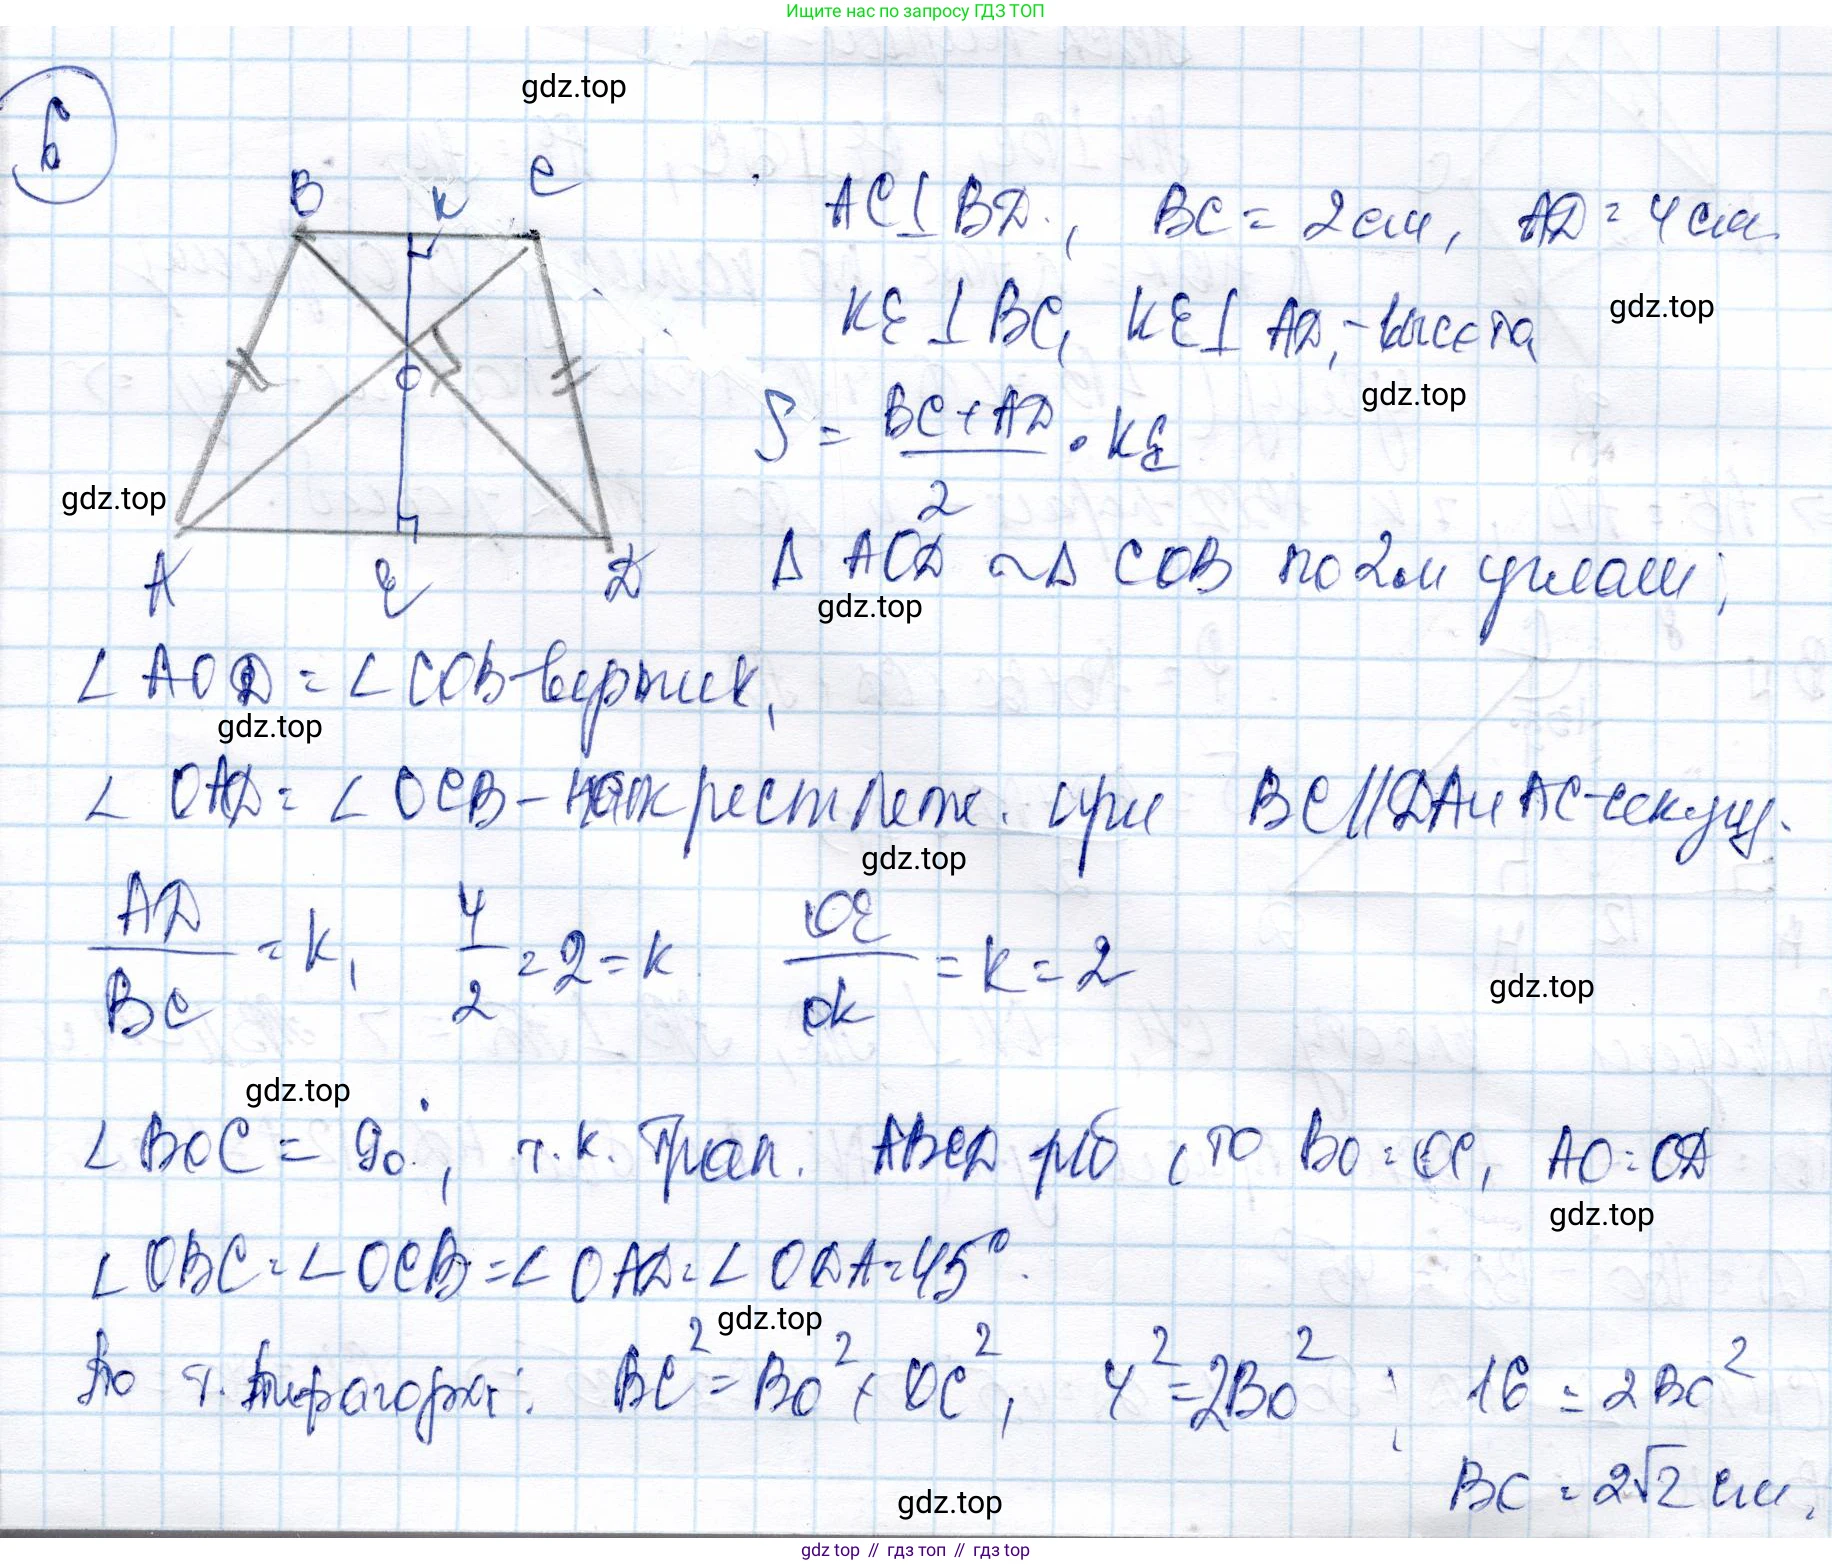 Ищите нас по запросу ГДЗ ТОП
gdz.top
6
B K C
AC⊥BD, BC = 2см, AD = 4см.
KE⊥BC, KE⊥AD, - высота
gdz.top
gdz.top
O
S = (BC + AD)/2 · KE
gdz.top
A E D
Δ AOD ~ Δ COB по 2м углам;
gdz.top
∠ AOD = ∠ COB - вертик,
gdz.top
∠ OAD = ∠ OCB - накрест леж. при BC//DA и AC - секущ.
gdz.top
AD/BC = k, 4/2 = 2 = k OE/OK = k = 2
gdz.top
gdz.top
∠ BOC = 90°, т.к. трап. ABCD р/б, то BO = OC, AO = OD
gdz.top
∠ OBC = ∠ OCB = ∠ OAD = ∠ ODA = 45°.
gdz.top
По т. Пифагора: BC² = BO² + OC², 4² = 2BO²; 16 = 2BO²
BC = 2√2 см.
gdz.top
gdz top // гдз топ // гдз top